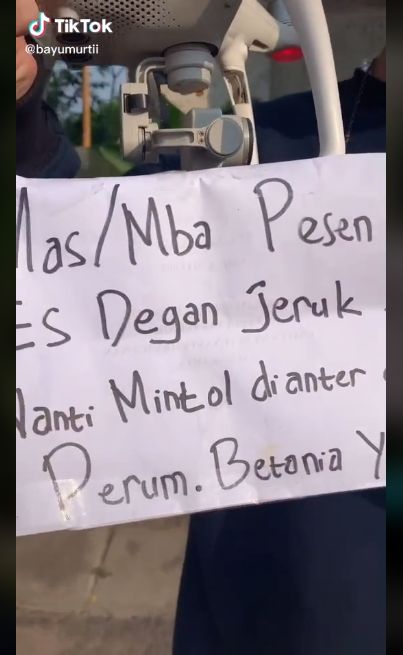 TikTok
@bayumurtii
Mas/Mba Pesen
Es Degan Jeruk
Nanti Mintol dianter
Perum. Betania Y